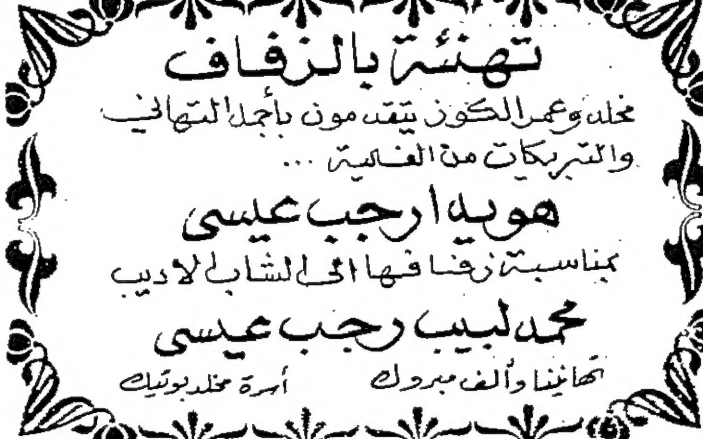 تهنئة بالزفاف
مخلد وعمر الكوز يتقدمون بأجمل التهاني
والتبريكات من الغالية ...
هويدا رجب عيسى
بمناسبة زفافها الى الشاب الاديب
محمد لبيب رجب عيسى
تهانينا وألف مبروك أسرة مخلد بوتيك